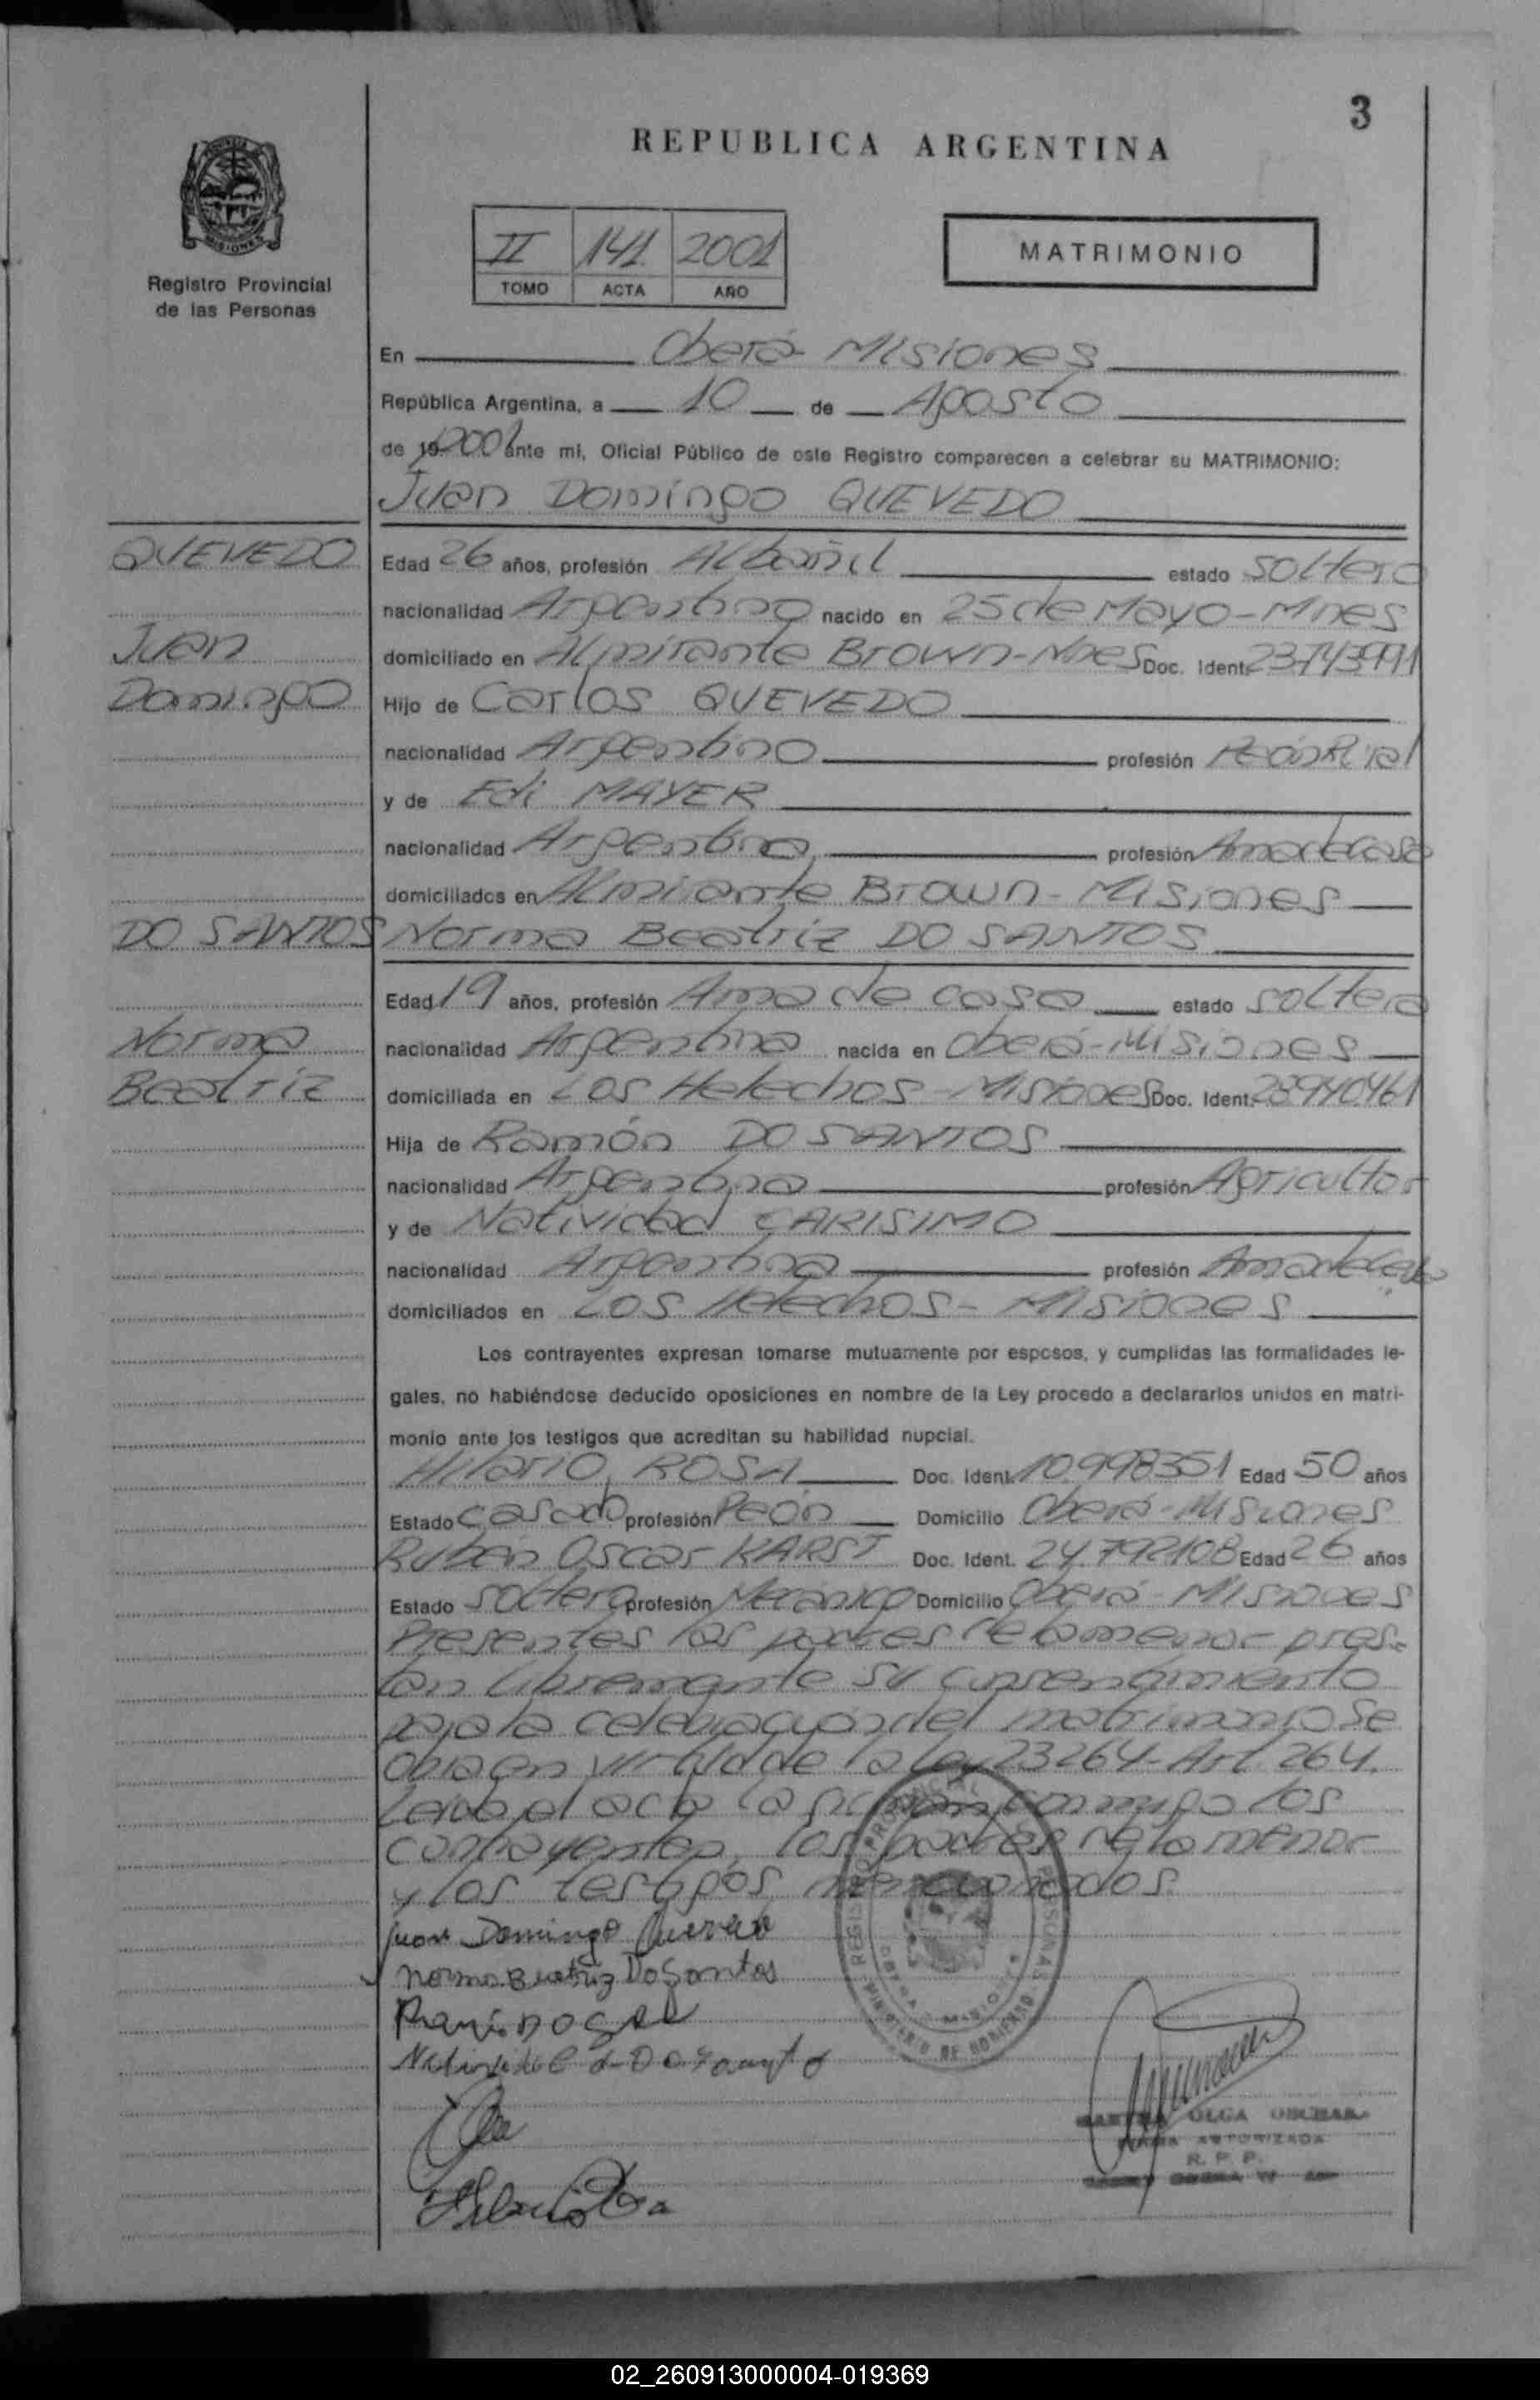 3
REPUBLICA ARGENTINA
MISIONES
Registro Provincial
de las Personas
II 141 2001
TOMO ACTA AÑO
MATRIMONIO
En Oberá - Misiones
República Argentina, a 10 de Agosto
de 19 2001 ante mi, Oficial Público de este Registro comparecen a celebrar su MATRIMONIO:
Juan Domingo QUEVEDO
QUEVEDO
Juan
Domingo
Edad 26 años, profesión Albañil estado soltero
nacionalidad Argentino nacido en 25 de Mayo - Mnes
domiciliado en Almirante Brown - Mnes Doc. Ident.
Hijo de Carlos QUEVEDO
nacionalidad Argentino profesión Peón Rural
y de Edi MAYER
nacionalidad Argentina profesión Ama de casa
domiciliados en Almirante Brown - Misiones
DO SANTOS
Norma
Beatriz
Norma Beatriz DO SANTOS
Edad 19 años, profesión Ama de casa estado soltera
nacionalidad Argentina nacida en Oberá - Misiones
domiciliada en Los Helechos - Misiones Doc. Ident.
Hija de Ramón DO SANTOS
nacionalidad Argentina profesión Agricultor
y de Natividad CARISIMO
nacionalidad Argentina profesión Ama de casa
domiciliados en Los Helechos - Misiones
Los contrayentes expresan tomarse mutuamente por esposos, y cumplidas las formalidades le-
gales, no habiéndose deducido oposiciones en nombre de la Ley procedo a declararlos unidos en matri-
monio ante los testigos que acreditan su habilidad nupcial.
Hilario ROSA Doc. Ident. 10.998351 Edad 50 años
Estado casado profesión Peón Domicilio Oberá - Misiones
Rubén Oscar KARST Doc. Ident. 24.792108 Edad 26 años
Estado soltero profesión Mecánico Domicilio Oberá - Misiones
Presentes los padres de la menor pres-
tan libremente su consentimiento
para la celebración del matrimonio Se
obra en virtud de la Ley 23264 - Art. 264.
Leida el acta la firman conmigo los
contrayentes, los padres de la menor
y los testigos mencionados.
Juan Domingo Quevedo
Norma Beatriz Do Santos
REGISTRO PROVINCIAL PERSONAS
MINISTERIO DE GOBIERNO
OBERA MISIONES
OLGA
FIRMA AUTORIZADA
R. P. P.
02_260913000004-019369